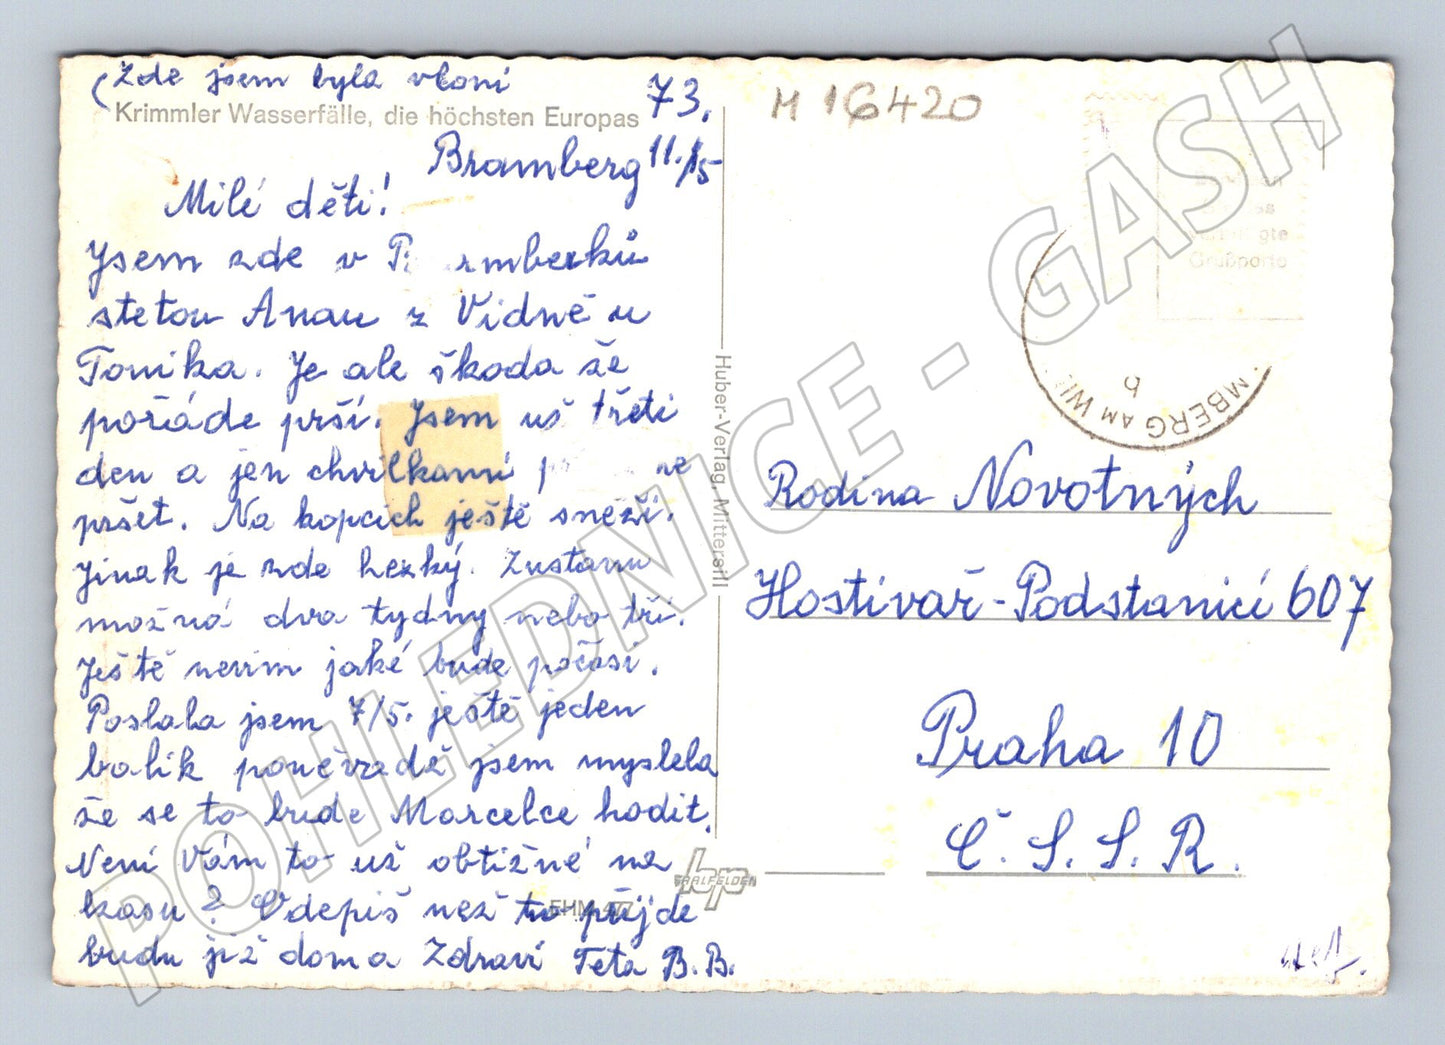 (Zde jsem byla vloni
Krimmler Wasserfälle, die höchsten Europas
73.
Bramberg 11./5
Milé děti!
Jsem zde v mberků
s tetou Anau z Vidně u
Tonika. Je ale škoda že
pořáde prší. Jsem už třeti
den a jen chvilkami ne
pršet. Na kopcích ještě sněží.
Jinak je zde hezký. Zustanu
možná dva tydny nebo tři.
Ještě nevim jaké bude počasi.
Poslala jsem 7/5. ještě jeden
balík poněvradž jsem myslela
že se to bude Marcelce hodit.
Není Vám to už obtižné na
kasu? Odepiš než to přijde
budu již doma Zdraví Teta B.B.
Huber-Verlag, Mittersill
EHM 477
hp
SAALFELDEN
M 16420
MBERG AM WI
b
Grußporto
Rodina Novotných
Hostivař-Podstanicí 607
Praha 10
Č.S.S.R.
POHLEDNICE - GASH